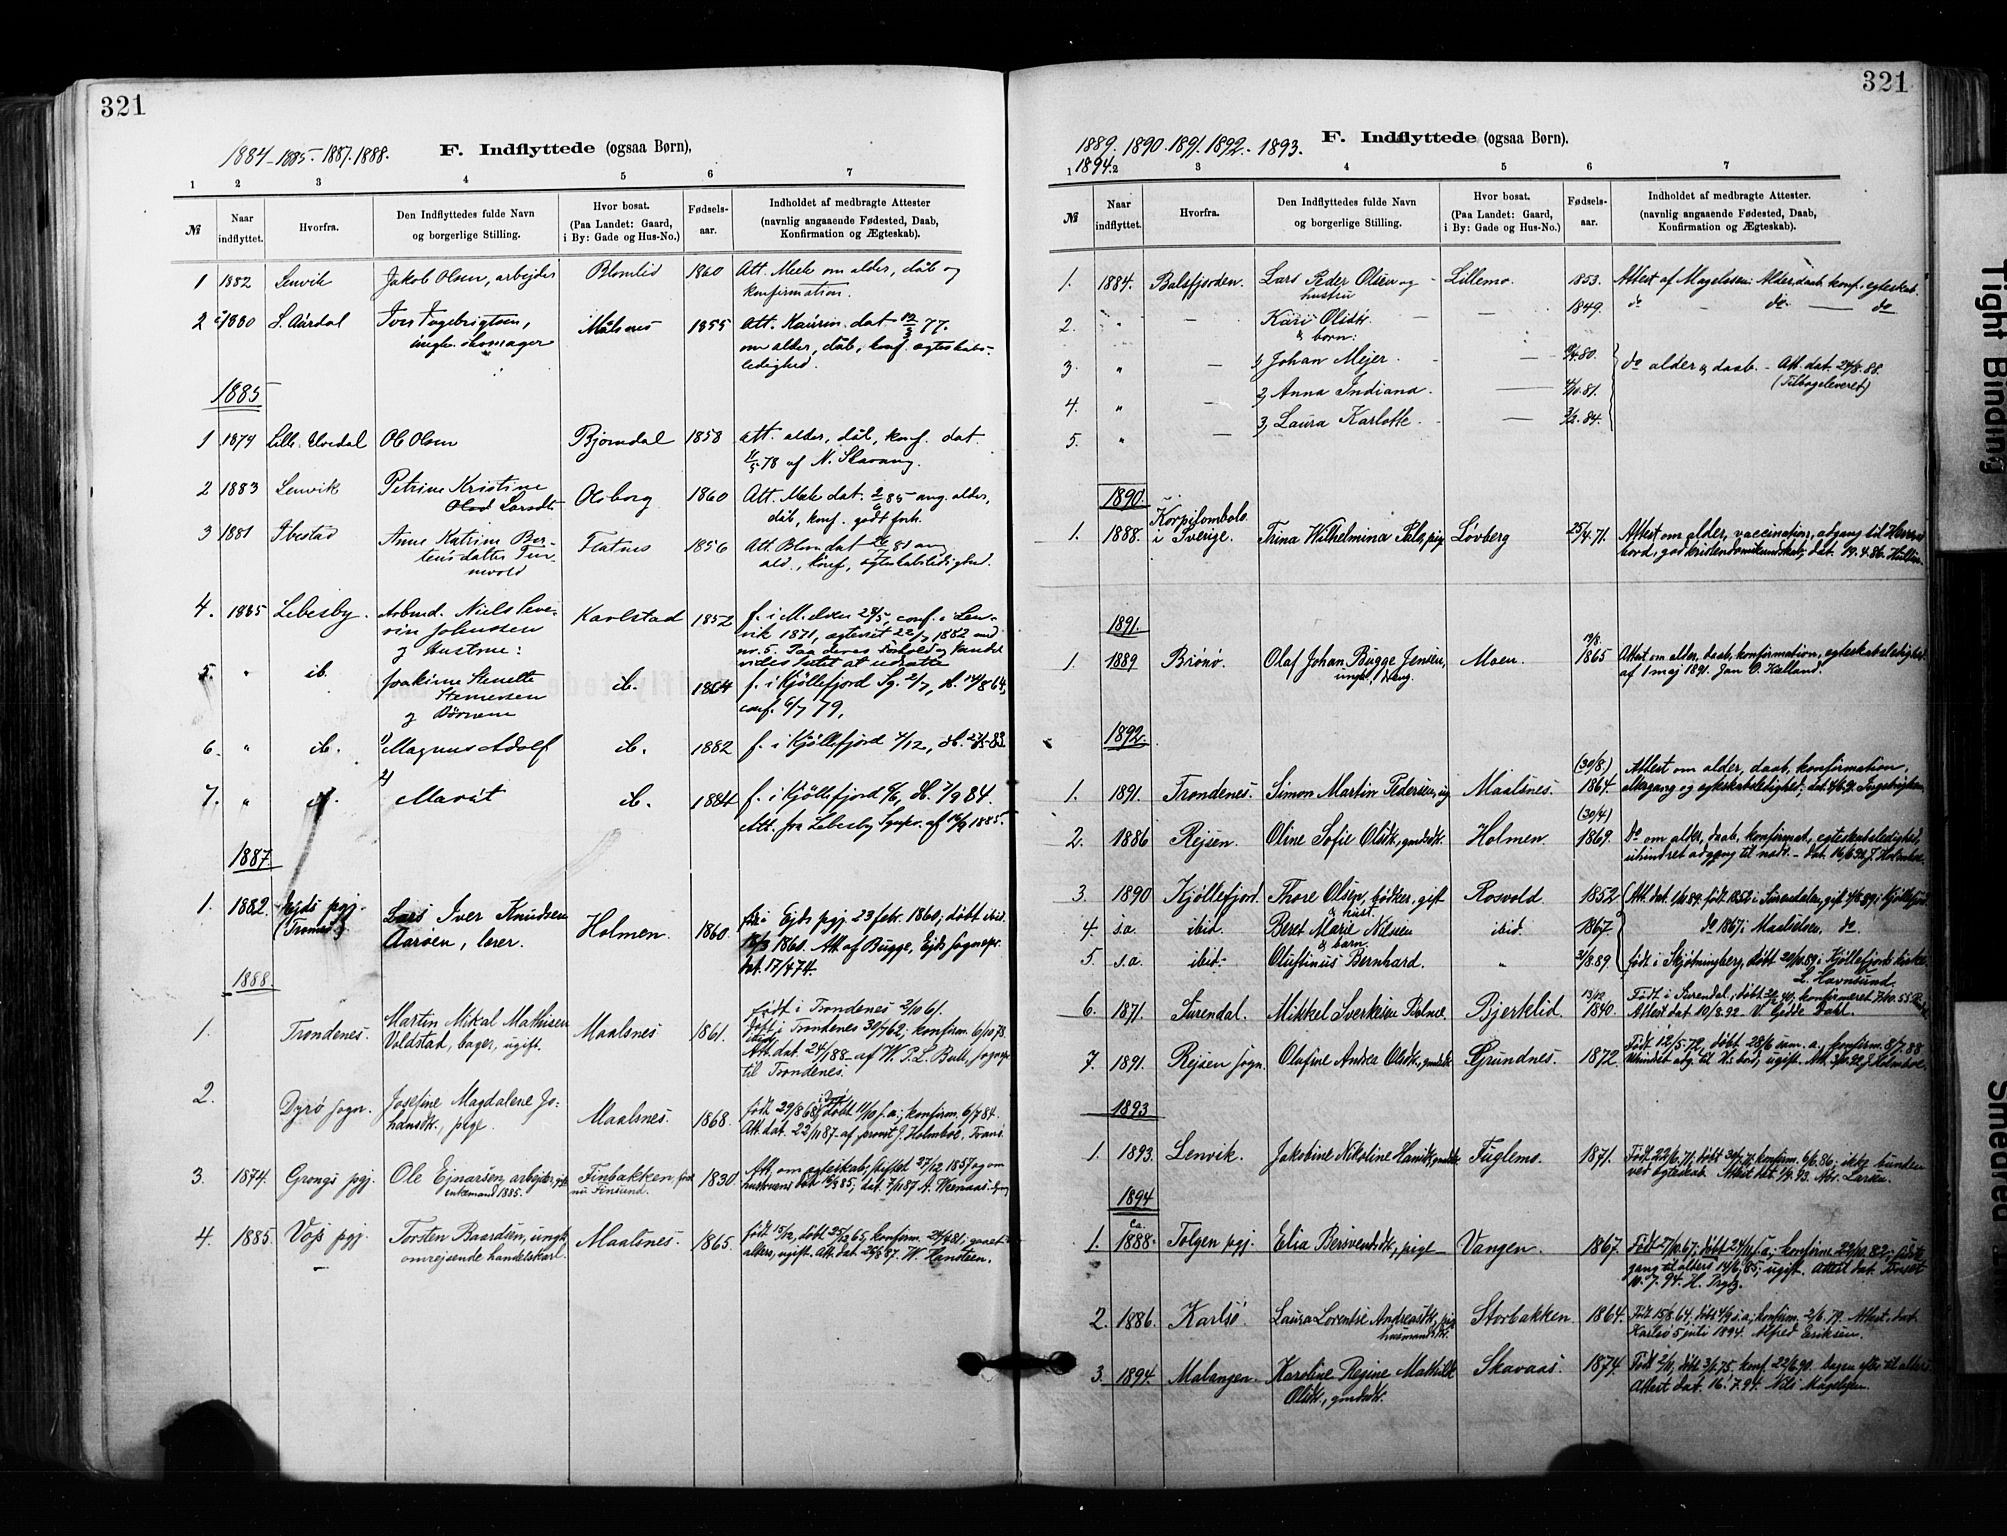 321
1884 - 1885 - 1887. 1888.
F. Indflyttede (ogsaa Børn),
1 2 3 4 5 6 7
№ Naar indflyttet. Hvorfra. Den Indflyttedes fulde Navn og borgerlige Stilling. Hvor bosat. (Paa Landet: Gaard, i By: Gade og Hus-No.) Fødsels-aar. Indholdet af medbragte Attester (navnlig angaaende Fødested, Daab, Konfirmation og Ægteskab).
1 1882 Lenvik Jakob Olsen, arbejder Blomlid 1860 Att. Mele om alder, dåb og
konfirmation.
2 1880 S. Aurdal Iver Ingebrigtsen, Målsnes 1855 Att. dat 12/3 77.
ungk. skomager om alder, dåb, konf. ægteskabs-
ledighed.
1885
1 1879 Lille Elvedal Ole Olsen Bjørndal 1858 Att. alder, dåb, konf. dat.
78 af N. Skavang.
2 1883 Lenvik Petrine Kristine Olsborg 1860 Att. Mele dat. 85 ang. alder,
Larsdt. dåb, konf. godt forh.
3 1881 Ibestad Anne Katrine Ber- Flatnes 1856 Att. Blom dat 81 ang
ald., konf, ægteskabsledighed.
4. 1885 Lebesby. Arbmd. Niels Seve- Karlstad 1852 f. i M.elven 28/5, conf. i Len-
rin Johnssen vik 1871, ægteviet 22/7 1882 med
og Hustrue: no. 5. Paa deres Forhold og Vandel
vides Intet at udsætte
5. " ib. Joakime ib. 1864 f. i Kjøllefjord Sg. 2/7, d. 14/8 64,
og Børnene conf. 6/7 79.
6. " ib. 1) Magnus Adolf ib. 1882 f. i Kjøllefjord 4/12, d. 83
7. " ib. 2) Marát ib. 1884 f. i Kjöllefjord 6/6, d. 7/9 84.
Att. fra Lebesby Sgnpr. af 14/9 1885.
1887
1. 1882. Ejds pgj. Lars Iver Knudsen Holmen. 1860. Ejds pgj. 23 febr. 1860, døbt ibid.
(Tromsø). Aarøen, lærer. 18/3 1860. Att. af Bugge, Ejds sognepr.
dat. 17/4 74.
1888.
1. Trondenes. Martin Mikal Mathisen Maalsnes 1861. født i Trondenes 2/10 61.
Voldstad, bager, ugift. Døbt i Trondenes 30/7 62, konfirm. 6/10 78
ibid.
Att. dat. 24/1 88 af W. P. L. Bull, sognepr.
til Trondenes.
2. Dyrø sogn. Josefine Magdalene Jo- Maalsnes. 1868. født 29/8 68, døbt 11/10 s.a.; konfirm. 6/7 84.
hansdt., pige. Att. dat. 22/11 87 af provst J. Holmboe, Tranø.
3. 1874. Grongs pgj. Ole Ejnarsen, arbejder, Finbakken, 1830 Att. om ægteskab, stiftet 27/12 1857 og om
enkemand 1885. nu Finsund. hustruens død 85; dat. 7/11 87 A. Weenaas.
4. 1885. Voss pgj. Torsten Baardsen, ungk., Maalsnes. 1865. født 15/12, døbt 25/12 65, konfirm. 24/6 81, gaaet
omrejsende handelskarl. alters, ugift. Att. dat. 87. W. Hansteen.
321
1889. 1890. 1891. 1892. - 1893.
1894.
F. Indflyttede (ogsaa Børn).
1 2 3 4 5 6 7
№ Naar indflyttet. Hvorfra. Den Indflyttedes fulde Navn og borgerlige Stilling. Hvor bosat. (Paa Landet: Gaard, i By: Gade og Hus-No.) Fødsels-aar. Indholdet af medbragte Attester. (navnlig angaaende Fødested, Daab, Konfirmation og Ægteskab).
1. 1884. Balsfjorden. Lars Peder Olsen og Lillemo. 1853. Attest af Magelssen: Alder, daab, konf. egteskab.
hustru
2. " - Kari Olsdt. - - 1849. do - do - do
& børn:
3. " - 1) Johan Mejer. - - 80. do alder & daab. - Att. dat. 88.
(Tilbageleveret)
4. " - 2) Anna Indiana. - 81.
5. " - 3) Laura Karlotte. - 84.
1890.
1. 1888. Korpilombolo i Sverige. Trina Wilhelmina Pals, pige Løvberg 25/4 71. Attest om alder, vaccination, adgang til Herrens
bord, god kristendomskundskab; dat. 19.4.86.
1891.
1. 1889 Brønø. Olaf Johan Bugge Jensen, Moen. 1865 Attest om alder, daab, konfirmation, egteskabsledighed
ungk., af 1 maj 1891. Jan O. Kalland.
1892.
1. 1891. Trondenes. Simon Martin Pedersen, ug Maalsnes. (30/8.) 1864. Attest om alder, daab, konfirmation,
altergang og egteskabsledighed;
2. 1886 Rejsen. Oline Sofie Olsdt., gmdsdt. Holmen. (30/4) 1869. do om alder, daab, konfirmat., egteskabsledighed,
uhindret adgang til nadv. - dat. 16/6 92 J. Holmboe.
3. 1890 Kjøllefjord. Thore Olsen, bødker, gift Rosvold 1852 Att. dat. 89. født 1852 i Surendalen, gift 89 i Kjøllefjord.
& hust.
4. s.a. ibid. Beret Marie Nilsen ibid. 1867. do 1867 i Maalselven, do.
& barn
5. s.a ibid.- Oluftinus Bernhard. " 2/8.89. født i Skjøtningberg, døbt 20/10.89 i Kjøllefjords kirke.
L. Havnsund.
6. 1871. Surendal. Mikkel Sverkesen Bolme. Bjerklid. 13/12 1840. Født i Surendal; døbt 40, konfirmeret 55.
Attest dat. 10/8.92 V. Gedde Dahl.
7. 1891. Rejsen sogn. Olufine Andrea Olsdt., gmdsdt. Grundnes. 1872. Født 12/5.72, døbt 28/6 sam. a.; konfirm. 8/7.88
Uhindret adg. til H. bord, ugift. Att. 92 J. Holmboe.
1893
1. 1893. Lenvik. Jakobine Nikoline Hansdt., gmdsdt. Fuglemo. 1871. Født 22/6.71, døbt 30/7.71, konfirm. 6/6.86; ikke bunden
ved egteskab. Attest dat. 93. Abr. Larsen.
1894
1. ca. 1888. Tolgen pgj. Elia Berivendsdt., pige Vangen. 1867. Født 27/10.67; døbt 24/11 s.a.; konfirm. 22/10.82; sidste
gang til alters 14/6.85; ugift. Attest dat. Tinset
10.7.94. H. Prytz.
2. 1886. Karlsø. Laura Lorentse Andreasdt., pige Storbakken. 1864. Født 15/8.64, døbt 4/9 s.a.; konfirm. 2/6.79. Attest dat.
husmandsdt. Karlsø 5 juli 1894. Alfred Eriksen.
3. 1894. Malangen. Karoline Regine Mathilde Skavaas. 1874. Født 2/11, døbt 3/1.75, konf 22/6.90. Dagen efter til alters.
Olsdt., gmdsdt. Attest dat. 16.7.94. Nils Magelssen.
Tight Binding